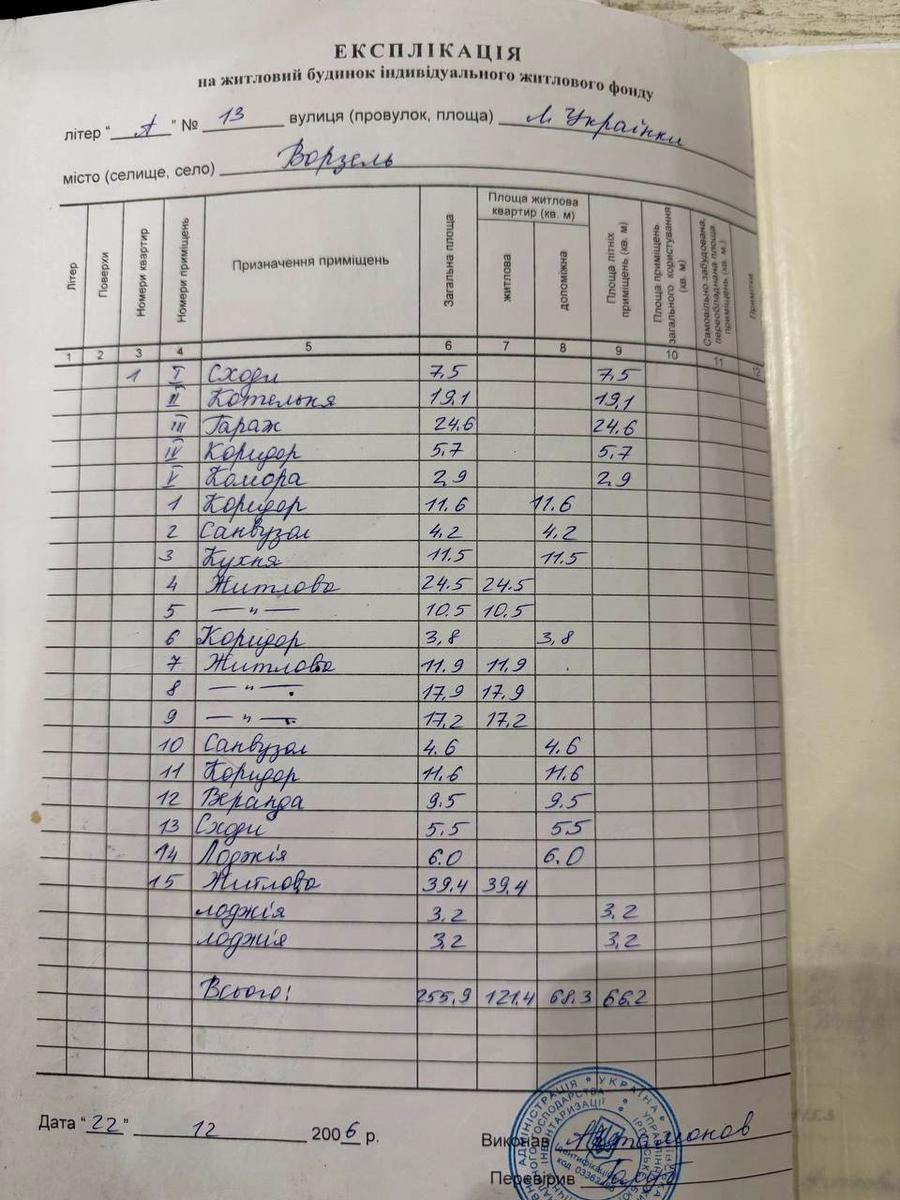 ЕКСПЛІКАЦІЯ
на житловий будинок індивідуального житлового фонду
літер "А" № 13 вулиця (провулок, площа) Л. Українки
місто (селище, село) Ворзель
Літер
Поверхи
Номери квартир
Номери приміщень
Призначення приміщень
Загальна площа
Площа житлова квартир (кв. м)
житлова
допоміжна
Площа літніх приміщень (кв. м)
Площа приміщень загального користування (кв. м)
Самовільно забудована, переобладнана площа приміщень (кв. м.)
Примітки
1 2 3 4 5 6 7 8 9 10 11 12
1 I Сходи 7,5 7,5
II Котельня 19,1 19,1
III Гараж 24.6 24.6
IV Коридор 5,7 5,7
V Комора 2,9 2,9
1 Коридор 11.6 11.6
2 Санвузол 4.2 4.2
3 Кухня 11.5 11.5
4 Житлова 24.5 24.5
5 — " — 10.5 10.5
6 Коридор 3,8 3,8
7 Житлова 11.9 11.9
8 — " — 17.9 17.9
9 — " — 17.2 17.2
10 Санвузол 4.6 4.6
11 Коридор 11.6 11.6
12 Веранда 9.5 9.5
13 Сходи 5.5 5.5
14 Лоджія 6.0 6.0
15 Житлова 39.4 39.4
лоджія 3.2 3.2
лоджія 3,2 3,2
Всього: 255.9 121.4 68.3 66.2
Дата "22" 12 2006 р.
Виконав Артамонов
Перевірив